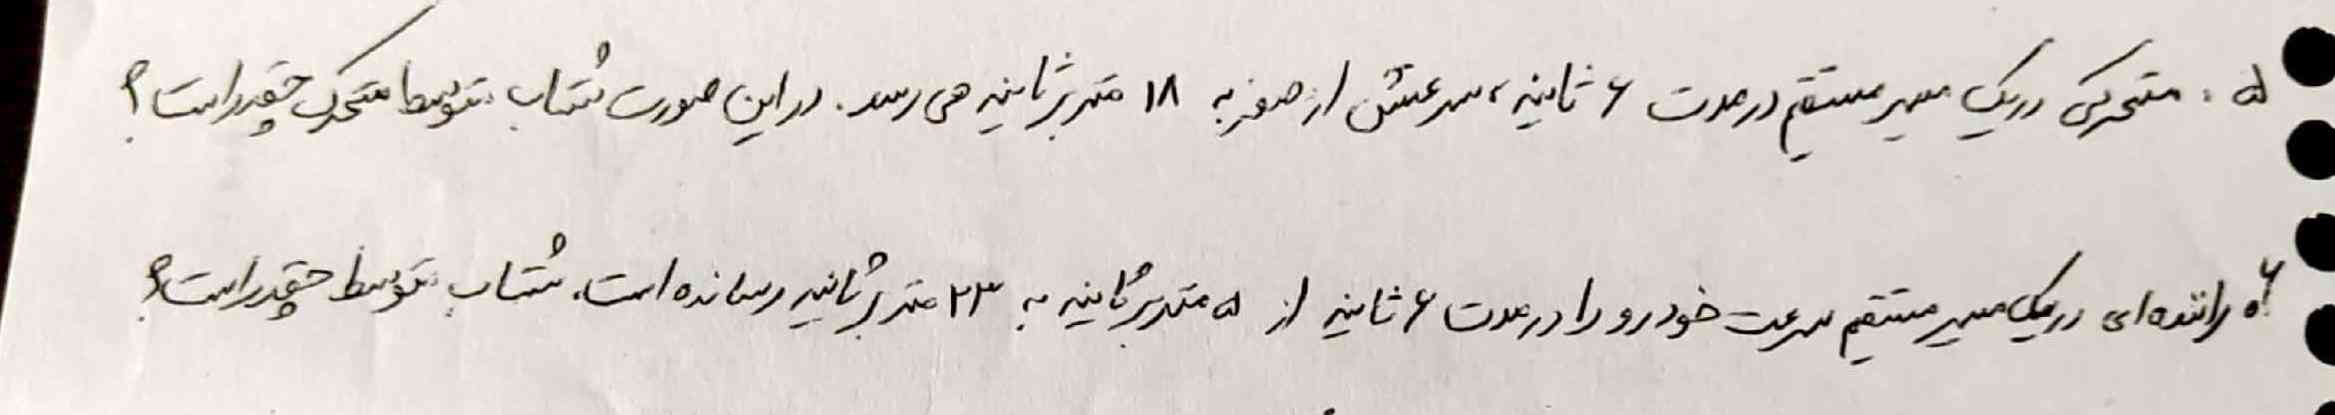 ۵. متحرکی در یک مسیر مستقیم در مدت ۶ ثانیه، سرعتش از صفر به ۱۸ متر بر ثانیه می رسد. در این صورت شتاب متوسط متحرک چقدر است؟
۶. راننده ای در یک مسیر مستقیم سرعت خودرو را در مدت ۶ ثانیه از ۵ متر بر ثانیه به ۲۳ متر بر ثانیه رسانده است. شتاب متوسط چقدر است؟